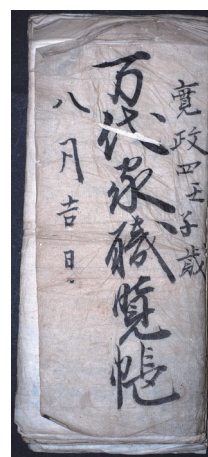 寛政四壬子歳
万代家職覧帳
八月吉日